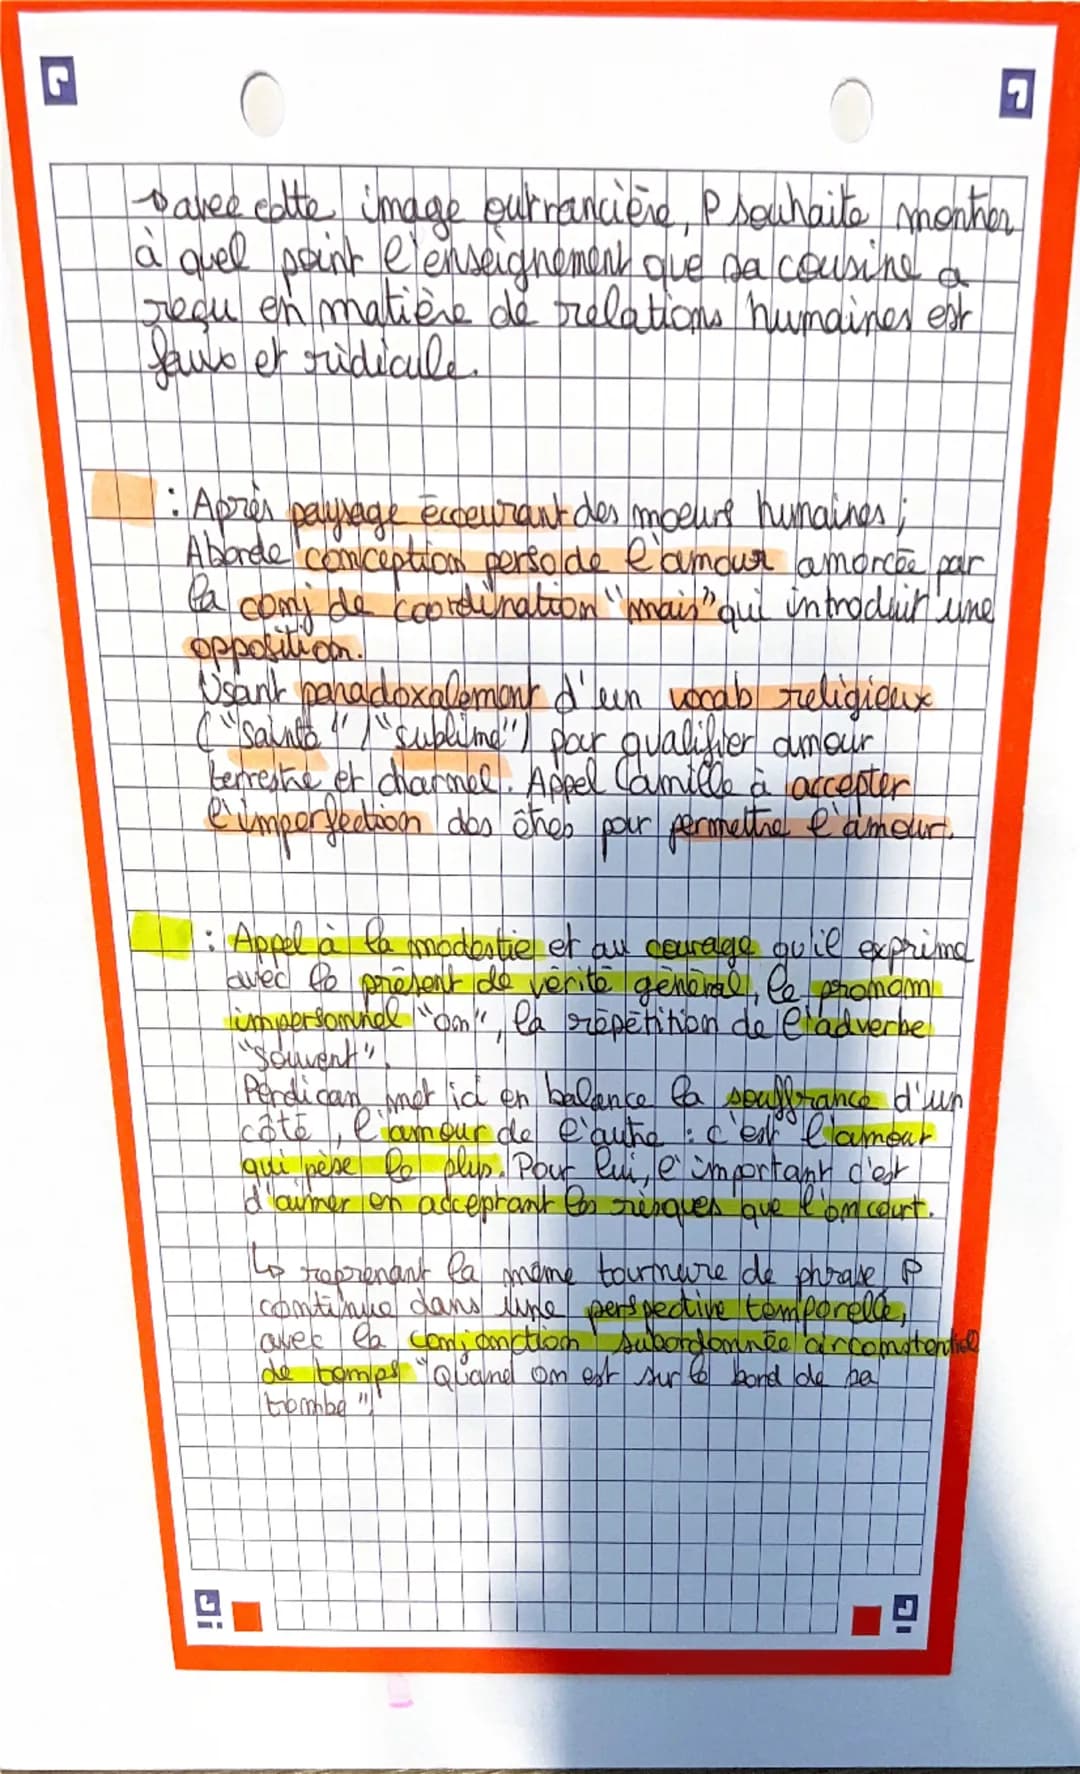 → avec cette image outrancière, P souhaite montrer
à quel point l'enseignement que sa cousine a
reçu en matière de relations humaines est
faux et ridicule.
: Après paysage écoeurant des moeurs humaines ;
Aborde conception perso de l'amour amorcée par
la conj de coordination "mais" qui introduit une
opposition.
Usant paradoxalement d'un vocab religieux
("sainte" / "sublime") pour qualifier amour
terrestre et charnel. Appel Camille à accepter
l'imperfection des êtres pour permettre l'amour.
: Appel à la modestie et au courage qu'il exprime
avec le présent de vérité général, le pronom
impersonnel "on", la répétition de l'adverbe
"souvent".
Perdican met ici en balance la souffrance d'un
côté, l'amour de l'autre : c'est l'amour
qui pèse le plus. Pour lui, l'important c'est
d'aimer en acceptant les risques que l'on court.
↳ reprenant la même tournure de phrase P
continue dans une perspective temporelle,
avec la conjonction subordonnée circonstentiel
de temps "Quand on est sur le bord de sa
tombe"